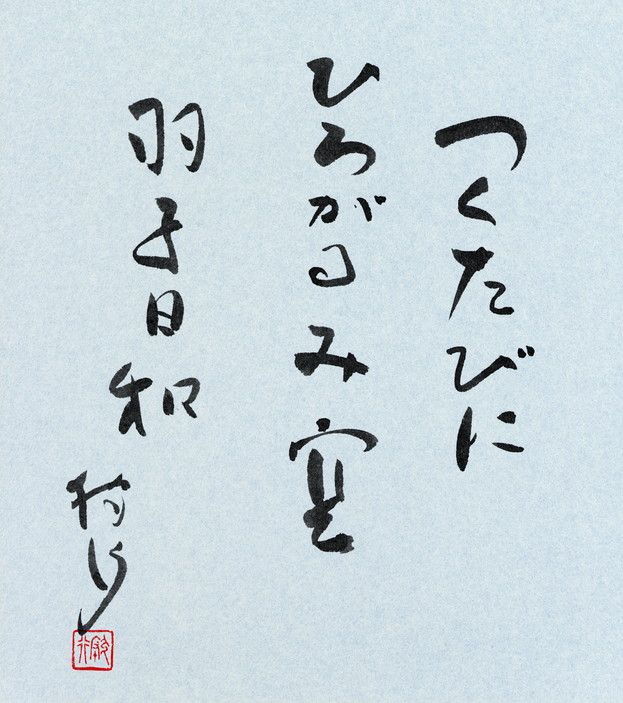 つくたびに
ひろがるみ空
羽子日和
狩行